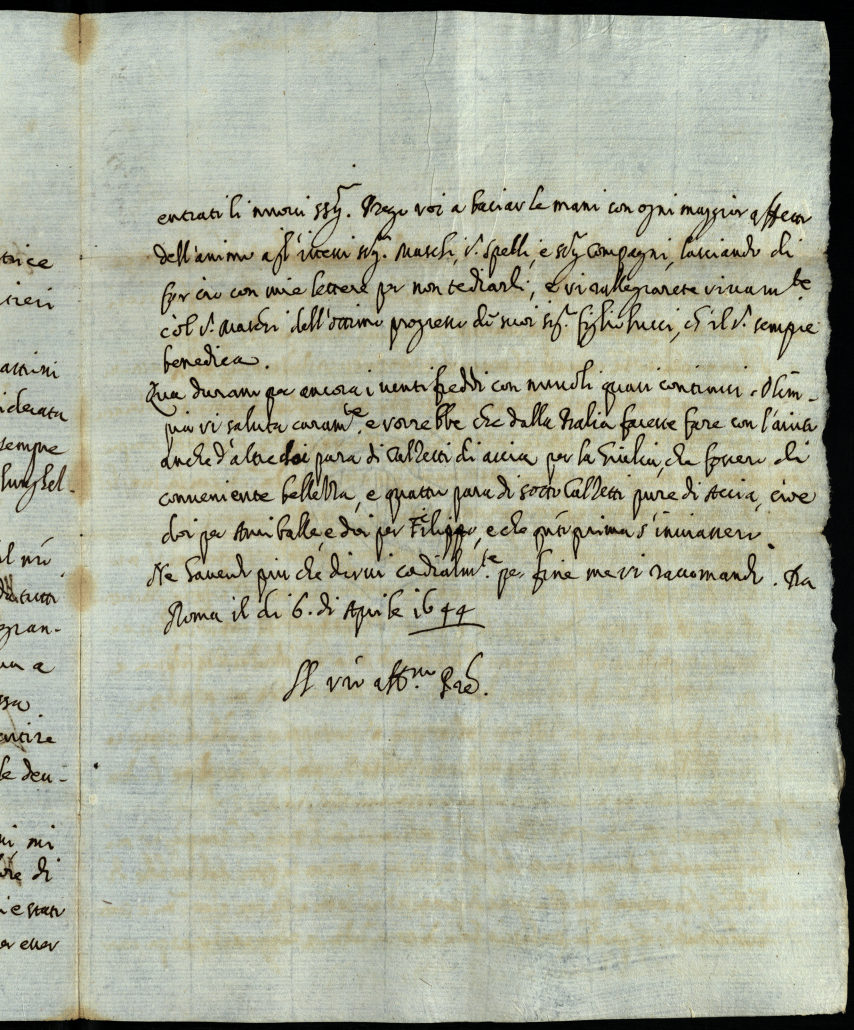 trice
tieri
attini
iderata
sempre
lunghel-
il mio
di tutti
gran-
una a
ssa
entire
le deu-
ni, mi
ore di
i e stato
er esser
entrati li nuovi ssri. Prego voi a baciar le mani con ogni maggior affetto
dell'animo a gl'istessi sri. Maschi, s. Spelli, e sri compagni, lasciando di
far ciò con mie lettere per non tediarli, e vi rallegrarete vivamte
col s. Maschi dell'ottimo progresso de suoi sri. figliolucci, ch'il s. sempre
benedica.
Qua durano per ancora i venti freddi con nuvoli quasi continui. Olim-
pia vi saluta caramte, e vorrebbe che dalla Italia faceste fare con l'aiuto
anche d'altre doi para di Calzetti di accia per la Giulia, che fossero di
conveniente bellezza, e quattro para di sotto Calzetti pure di Accia, cioè
doi per Aniballe, e doi per Filippo, e che quto prima s'inviassero.
Ne havendo più che dirvi cordialmte per fine me vi raccomando. Da
Roma il di 6. di Aprile 1644
Il vro affmo Pre.